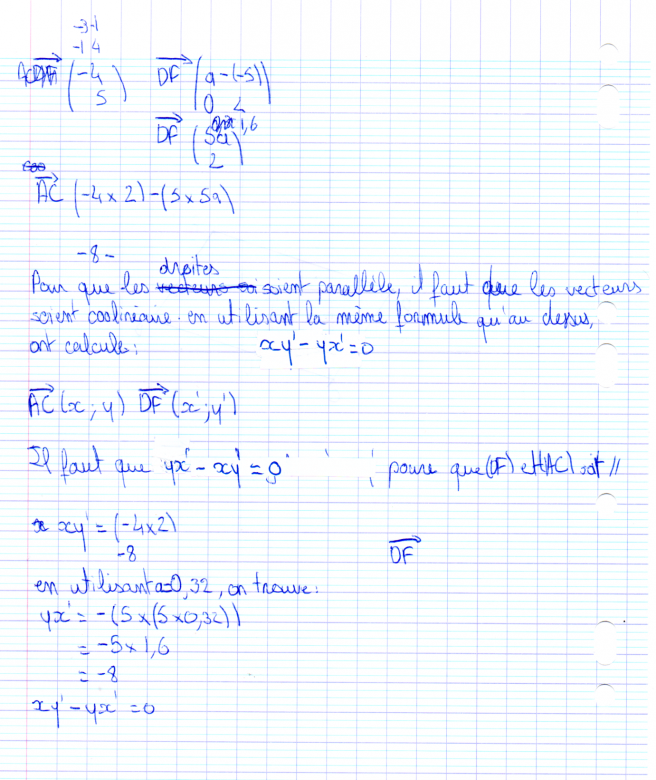 -3-1
-1 4
AC (-4 DF (a-(-5)
5) 0 2)
1,6
DF (5a
2)
AC (-4x2)-(5x5a)
-8-
droites
Pour que les soient parallèle, il faut que les vecteurs
soient coolinéaire. en utilisant la même formule qu'au dessus,
ont calcule: xy'-yx'=0
AC (x; y) DF (x'; y')
Il faut que yx'-xy'=0 poure que (DF) et (AC) soit //
xy' = (-4x2)
-8
DF
en utilisant a=0,32, on trouve:
yx' = -(5x(5x0,32))
= -5x1,6
= -8
xy'-yx' = 0